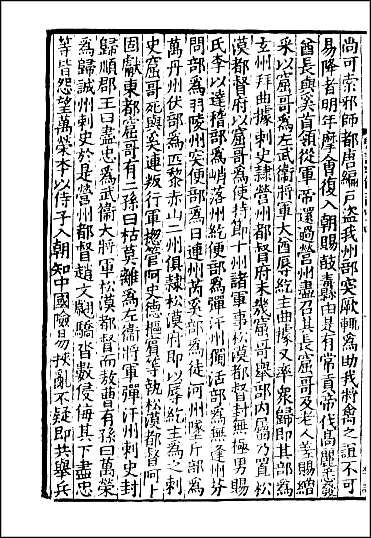 尚可索邪師都唐編戶盜我州部突厥輒為助我將禽之誼不可
易降者明年摩會復入朝賜鼓纛由是有常貢帝伐高麗悉發
酋長與奚首領從軍帝還過營州盡召其長窟哥及老人差賜繒
采以窟哥為左武衛將軍大酋辱紇主曲據又率眾歸即其部為
玄州拜曲據刺史隸營州都督府未幾窟哥舉部內屬乃置松
漠都督府以窟哥為使持節十州諸軍事松漠都督封無極男賜
氏李以達稽部為峭落州紇便部為彈汗州獨活部為無逢州芬
問部為羽陵州突便部為日連州芮奚部為徒河州墜斤部為
萬丹州伏部為匹黎赤山二州俱隸松漠府即以辱紇主為之刺
史窟哥死與奚連叛行軍摠管阿史德樞賓等執松漠都督阿卜
固獻東都窟哥有二孫曰枯莫離為左衛將軍彈汗州刺史封
歸順郡王曰盡忠為武衛大將軍松漠都督而敖曹有孫曰萬榮
為歸誠州刺史於是營州都督趙文翽驕沓數侵侮其下盡忠
等皆怨望萬榮本以侍子入朝知中國險易挾亂不疑即共舉兵